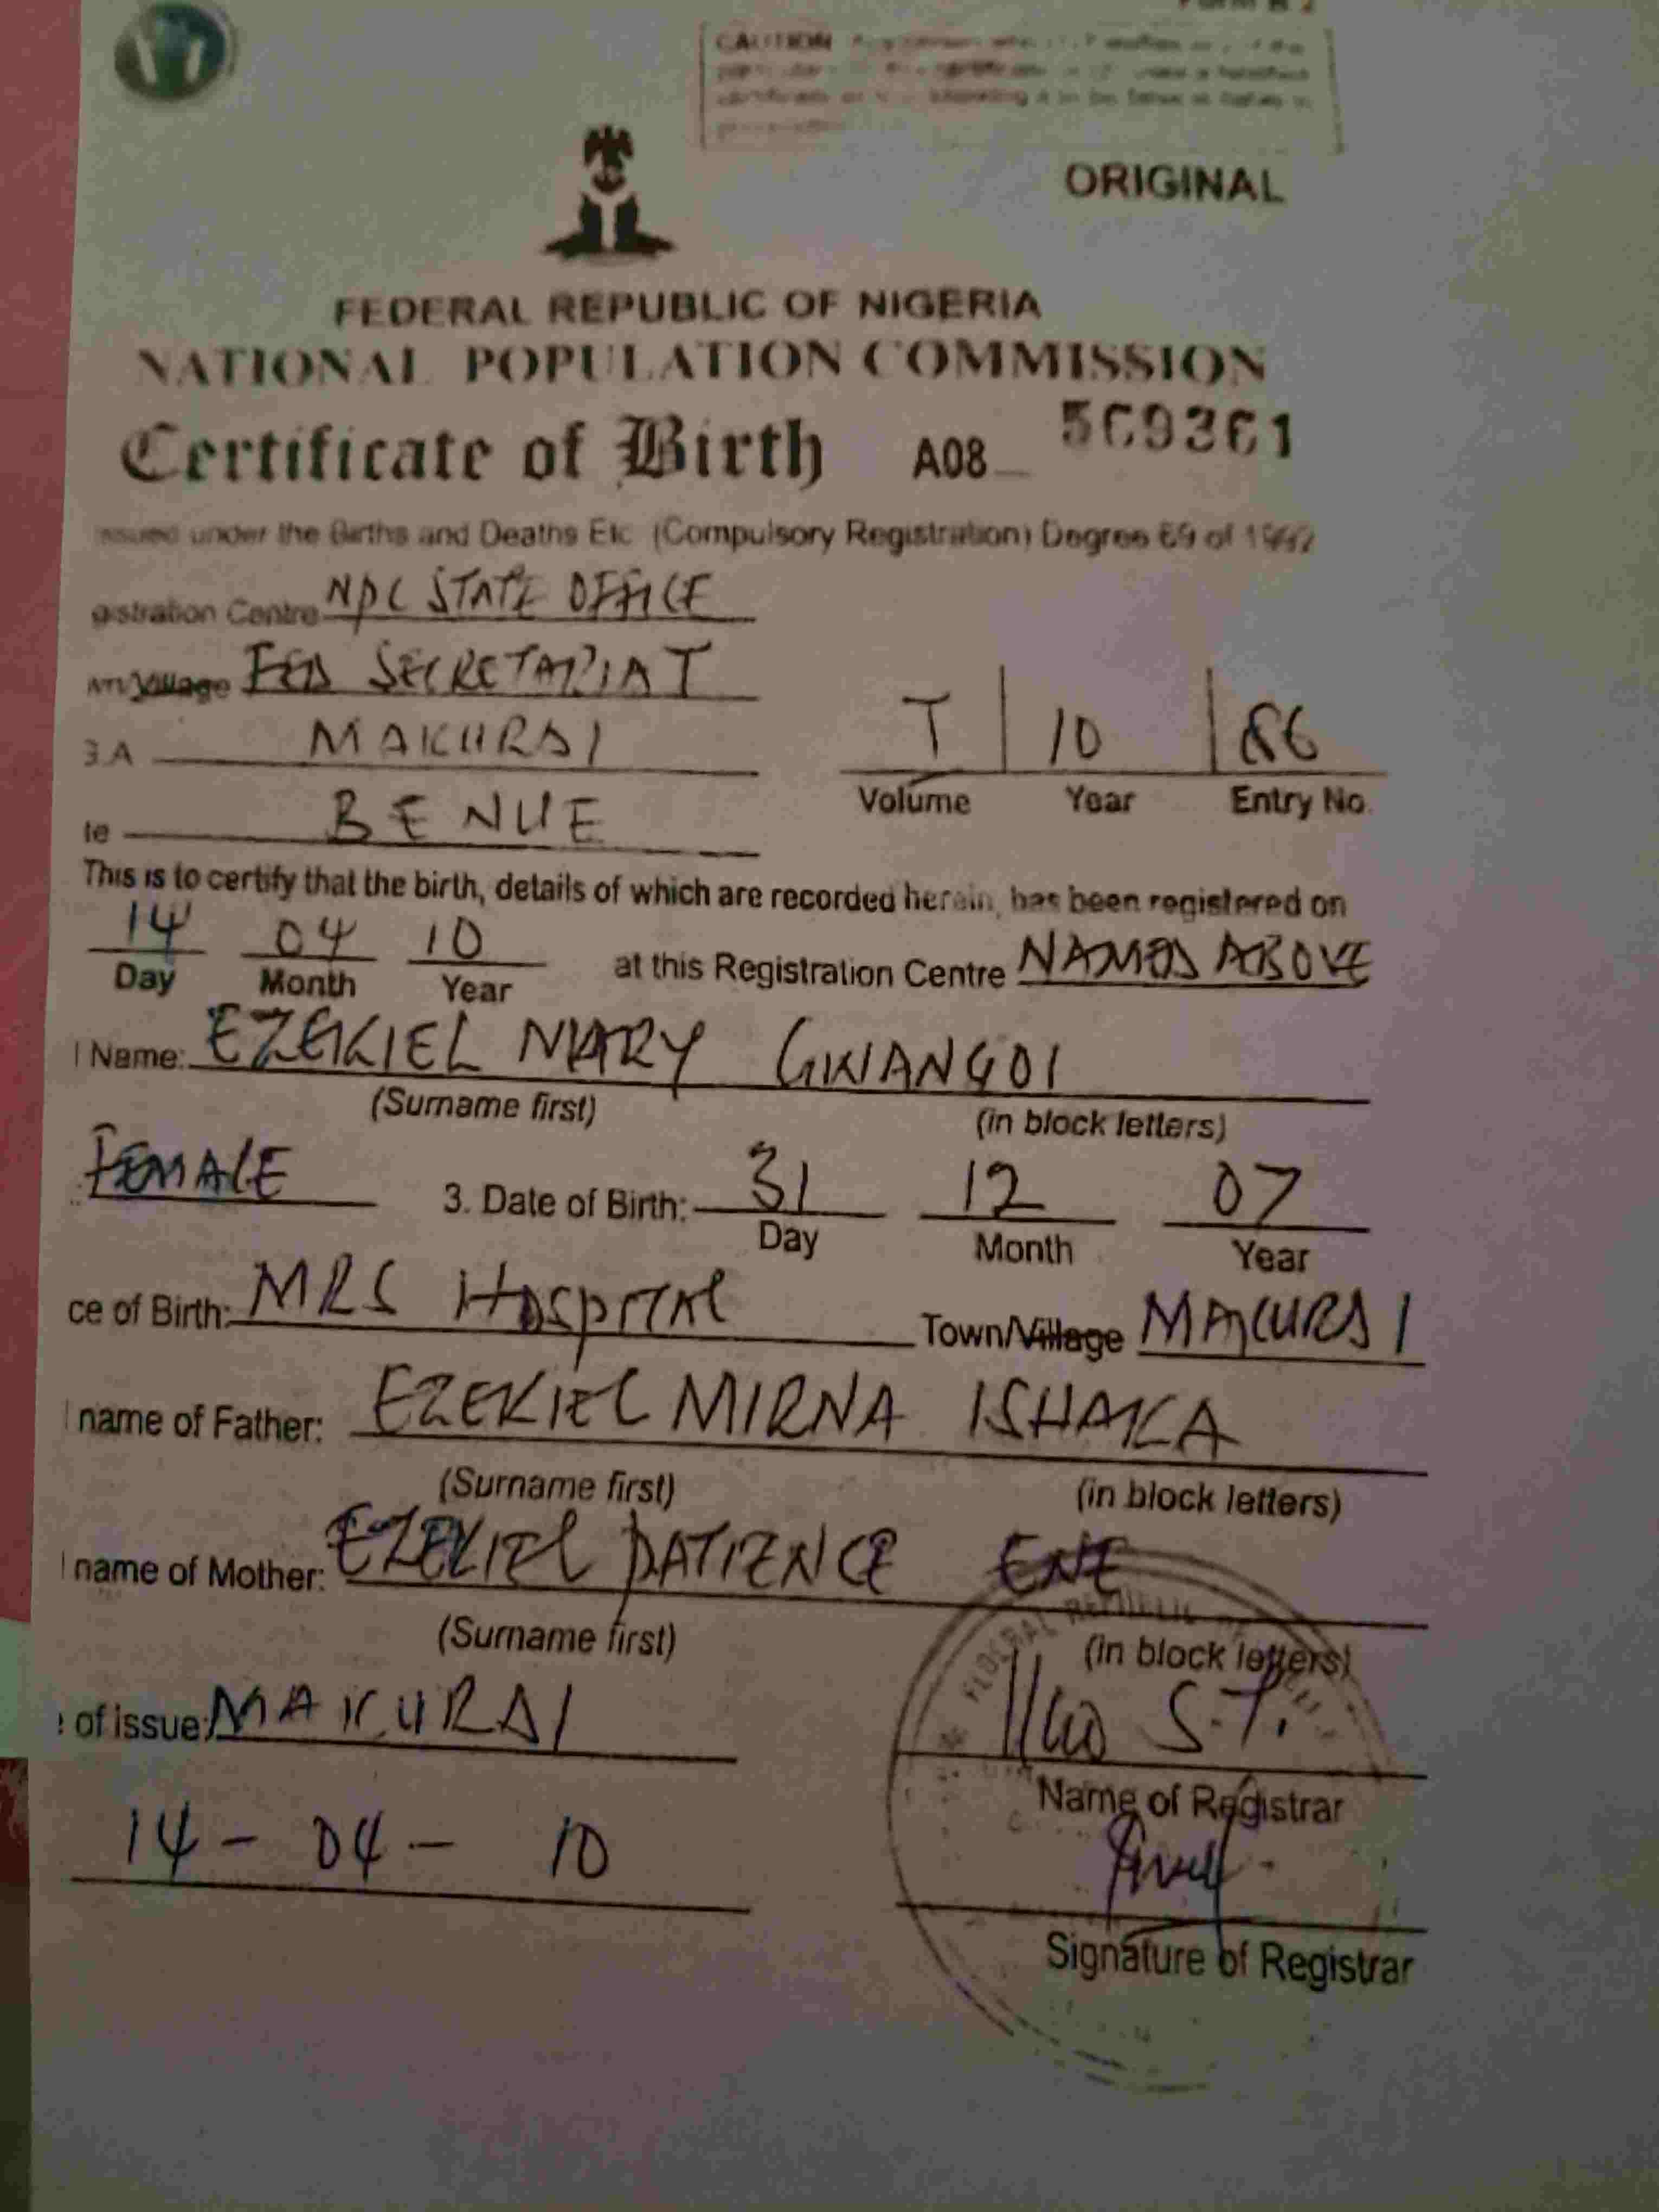 CAUTION
ORIGINAL
FEDERAL REPUBLIC OF NIGERIA
NATIONAL POPULATION COMMISSION
Certificate of Birth A08 569361
issued under the Births and Deaths Etc (Compulsory Registration) Degree 69 of
gistration Centre NPC STATE OFFICE
wn/Village FED SECRETARIAT
G.A MAKURDI
T 10 86
te BENUE
Volume Year Entry No.
This is to certify that the birth, details of which are recorded herein, has been registered on
14 04 10 at this Registration Centre NAMED ABOVE
Day Month Year
l Name: EZEKIEL MARY GWANGOI
(Surname first) (in block letters)
FEMALE 3. Date of Birth: 31 12 07
Day Month Year
ce of Birth: MRS Hospital Town/Village MAKURDI
l name of Father: EZEKIEL MIRNA ISHAKA
(Surname first) (in block letters)
l name of Mother: EZEKIEL PATIENCE ENE
(Surname first) (in block letters)
of issue: MAKURDI S.T.
Name of Registrar
14 - 04 - 10
Signature of Registrar